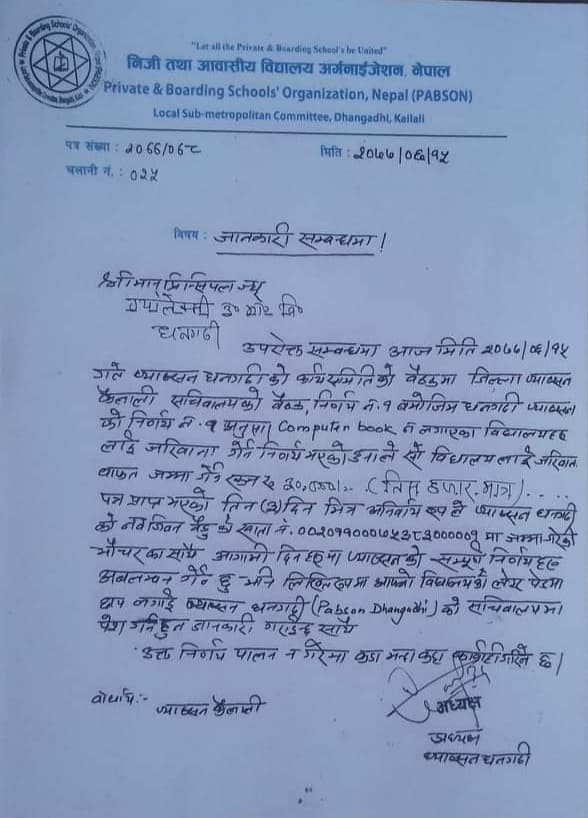 "Let all the Private & Boarding School's be United"
निजी तथा आवासीय विद्यालय अर्गनाईजेशन, नेपाल
Private & Boarding Schools' Organization, Nepal (PABSON)
Local Sub-metropolitan Committee, Dhangadhi, Kailali
पत्र संख्या : २०७७/०७८
मिति : २०७७/०६/१५
चलानी नं. : ०२५
विषय : जानकारी सम्बन्धमा !
श्रीमान् प्रिन्सिपल ज्यू
ग्यालेक्सी उ० मा० वि०
धनगढी
उपरोक्त सम्बन्धमा आज मिति २०७७/०६/१५
गते प्याब्सन धनगढीको कार्यसमितिको बैठकमा जिल्ला प्याब्सन
कैलाली सचिवालयको बैठक, निर्णय नं. १ बमोजिम धनगढी प्याब्सन
को निर्णय नं. १ अनुसार Computer book न लगाएका विद्यालयहरु
लाई जरिवाना गर्ने निर्णय भएको हुनाले सो विद्यालय लाई जरिवाना
वाफत जम्मा गर्ने रकम रु ३०,०००।.. (तिस हजार मात्र) . . . .
पत्र प्राप्त भएको तिन (३) दिन भित्र अनिवार्य रुप ले प्याब्सन धनगढी
को खाता नं. मा जम्मा गरेको
भौचर का साथै आगामी दिन हरुमा प्याब्सन को सम्पूर्ण निर्णय हरु
अबलम्बन गर्ने छु भनि लिखित रुपमा आफ्नो विद्यालयको लेटर प्याडमा
छाप लगाई प्याब्सन धनगढी (Pabson Dhangadhi) को सचिवालयमा
पेश गर्नुहुन जानकारी गराईन्छ साथै
उक्त निर्णय पालन न गरेमा कडा भन्दा कडा कार्वाही गरिने छ।
बोधार्थ :- प्याब्सन कैलाली
अध्यक्ष
अध्यक्ष
प्याब्सन धनगढी